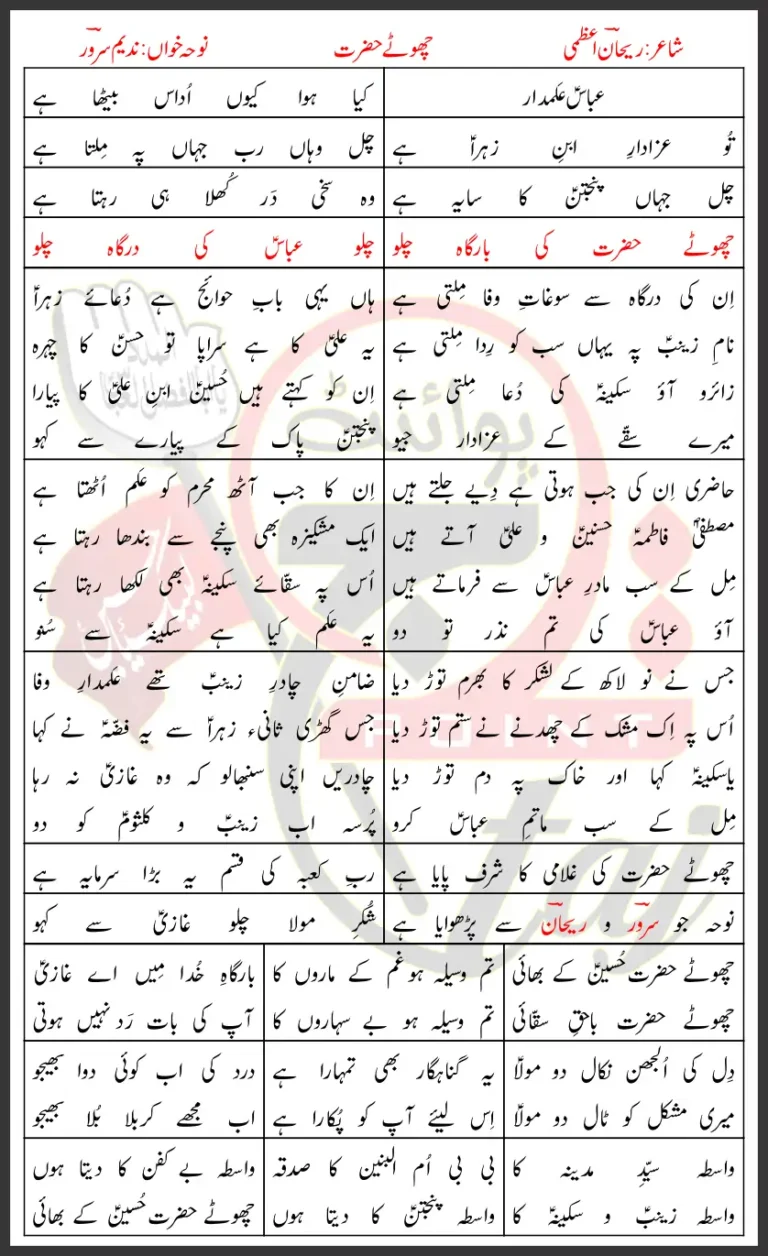 شاعر: ریحان اعظمی چھوٹے حضرت نوحہ خواں: ندیم سرور
عباسؑ علمدار کیا ہوا کیوں اُداس بیٹھا ہے
تُو عزادارِ ابنِ زہراؑ ہے چل وہاں رب جہاں پہ مِلتا ہے
چل جہاں پنجتنؑ کا سایہ ہے وہ سخی دَر کُھلا ہی رہتا ہے
چھوٹے حضرت کی بارگاہ چلو چلو عباسؑ کی درگاہ چلو
اِن کی درگاہ سے سوغاتِ وفا مِلتی ہے ہاں یہی بابِ حوائج ہے دُعائے زہراؑ
نامِ زینبؑ پہ یہاں سب کو رِدا مِلتی ہے یہ علیؑ کا ہے سراپا تو حسنؑ کا چہرہ
زائرو آؤ سکینہؑ کی دُعا مِلتی ہے اِن کو کہتے ہیں حُسینؑ ابنِ علیؑ کا پیارا
میرے سقّے کے عزادار جیو پنجتنؑ پاک کے پیارے سے کہو
حاضری اِن کی جب ہوتی ہے دِیے جلتے ہیں اِن کا جب آٹھ محرم کو علم اُٹھتا ہے
مصطفیٰؐ فاطمہؑ حسنینؑ و علیؑ آتے ہیں ایک مشکیزہ بھی پنجے سے بندھا رہتا ہے
مِل کے سب مادرِ عباسؑ سے فرماتے ہیں اُس پہ سقّائے سکینہؑ بھی لکھا رہتا ہے
آؤ عباسؑ کی تم نذر تو دو یہ علم کیا ہے سکینہؑ سے سُنو
جس نے نو لاکھ کے لشکر کا بھرم توڑ دیا ضامنِ چادرِ زینبؑ تھے علمدارِ وفا
اُس پہ اِک مشک کے چھدنے نے ستم توڑ دیا جس گھڑی ثانیٔ زہراؑ سے یہ فضّہؑ نے کہا
یاسکینہؑ کہا اور خاک پہ دم توڑ دیا چادریں اپنی سنبھالو کہ وہ غازیؑ نہ رہا
مِل کے سب ماتمِ عباسؑ کرو پُرسہ اب زینبؑ و کلثومؑ کو دو
چھوٹے حضرت کی غلامی کا شرف پایا ہے ربِ کعبہ کی قسم یہ بڑا سرمایہ ہے
نوحہ جو سرور و ریحان سے پڑھوایا ہے شُکرِ مولا چلو غازیؑ سے کہو
چھوٹے حضرت حُسینؑ کے بھائی تم وسیلہ ہو غم کے ماروں کا بارگاہِ خُدا مِیں اے غازیؑ
چھوٹے حضرت باحقِ سقّائی تم وسیلہ ہو بے سہاروں کا آپ کی بات رَد نہیں ہوتی
دِل کی اُلجھن نکال دو مولاؑ یہ گناہگار بھی تمہارا ہے درد کی اب کوئی دوا بھیجو
میری مشکل کو ٹال دو مولاؑ اِس لیئے آپ کو پُکارا ہے اب مجھے کربلا بُلا بھیجو
واسطہ سیّدِ مدینہ کا بی بی اُم البنین کا صدقہ واسطہ بے کفن کا دیتا ہوں
واسطہ زینبؑ و سکینہؑ کا واسطہ پنجتنؑ کا دیتا ہوں چھوٹے حضرت حُسینؑ کے بھائی
پوائینٹ
POINT
taj